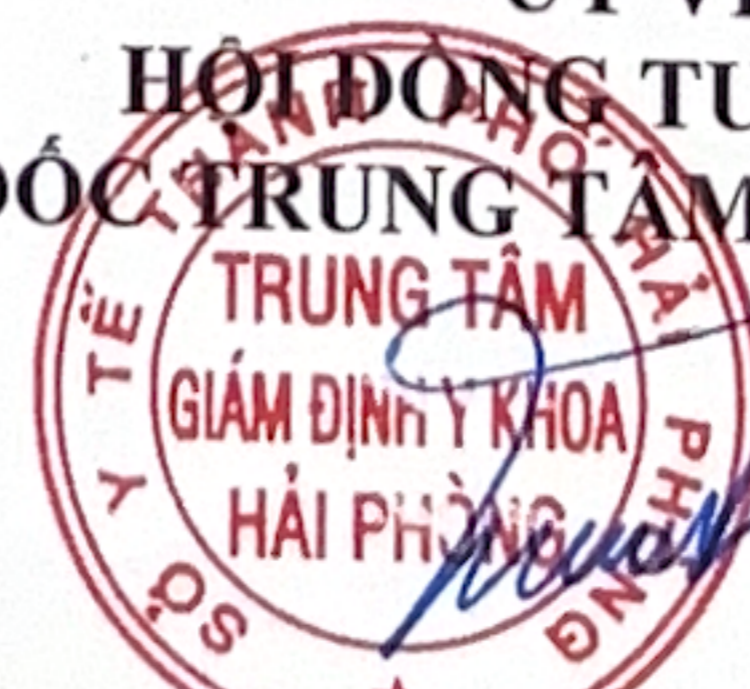 HỘI ĐỒNG TU
ĐỐC TRUNG TÂM
SỞ Y TẾ THÀNH PHỐ HẢI PHÒNG
TRUNG TÂM
GIÁM ĐỊNH Y KHOA
HẢI PHÒNG